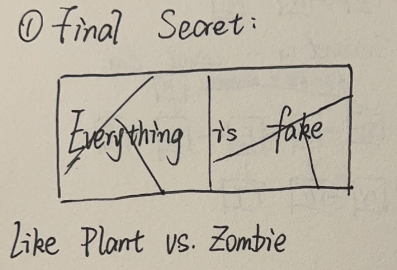 ① Final Secret:
Everything is fake
Like Plant vs. Zombie